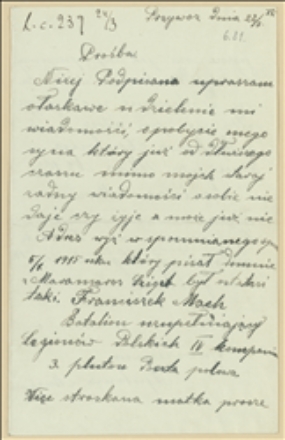 L. c. 237 24/3
Przywóz dnia 22/3
Prośba
Niżej Podpisana upraszam
o łaskawe udzielenie mi
wiadomości, o pobycie mego
syna który już od dłuższego
czasu mimo mojch starej
żadny wiadomości o sobie nie
daje czy żyje a może już nie
Adres wyż wspomnianego syna
1915 roku który pisał do mnie
z Maramaros Sziget był ostatni
taki. Franciszek Mach
Batalion uzupełniający
Legionów Polskich IV kompania
3. pluton Poczta polowa
Więc stroskana matka prosze